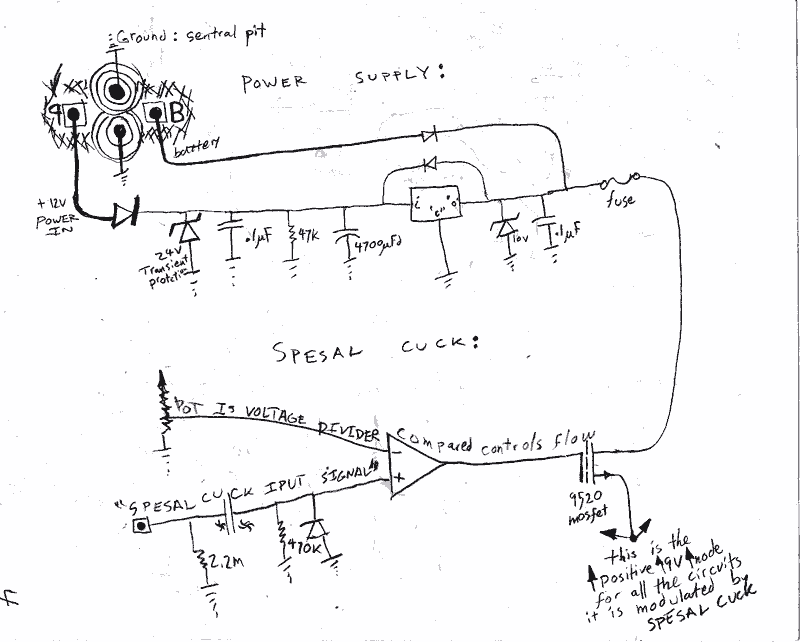 Ground: sentral pit
POWER SUPPLY:
B
battery
+12V
POWER
IN
24V
Transient
protection
.1µF
47K
4700µFd
i "6" o
10V
.1µF
fuse
SPESAL CUCK:
POT IS VOLTAGE DIVIDER
compared controls flow
-
+
"SPESAL CUCK IPUT SIGNAL"
2.2M
470K
9520
mosfet
this is the
positive 9V node
for all the circuits
it is modulated by
SPESAL CUCK